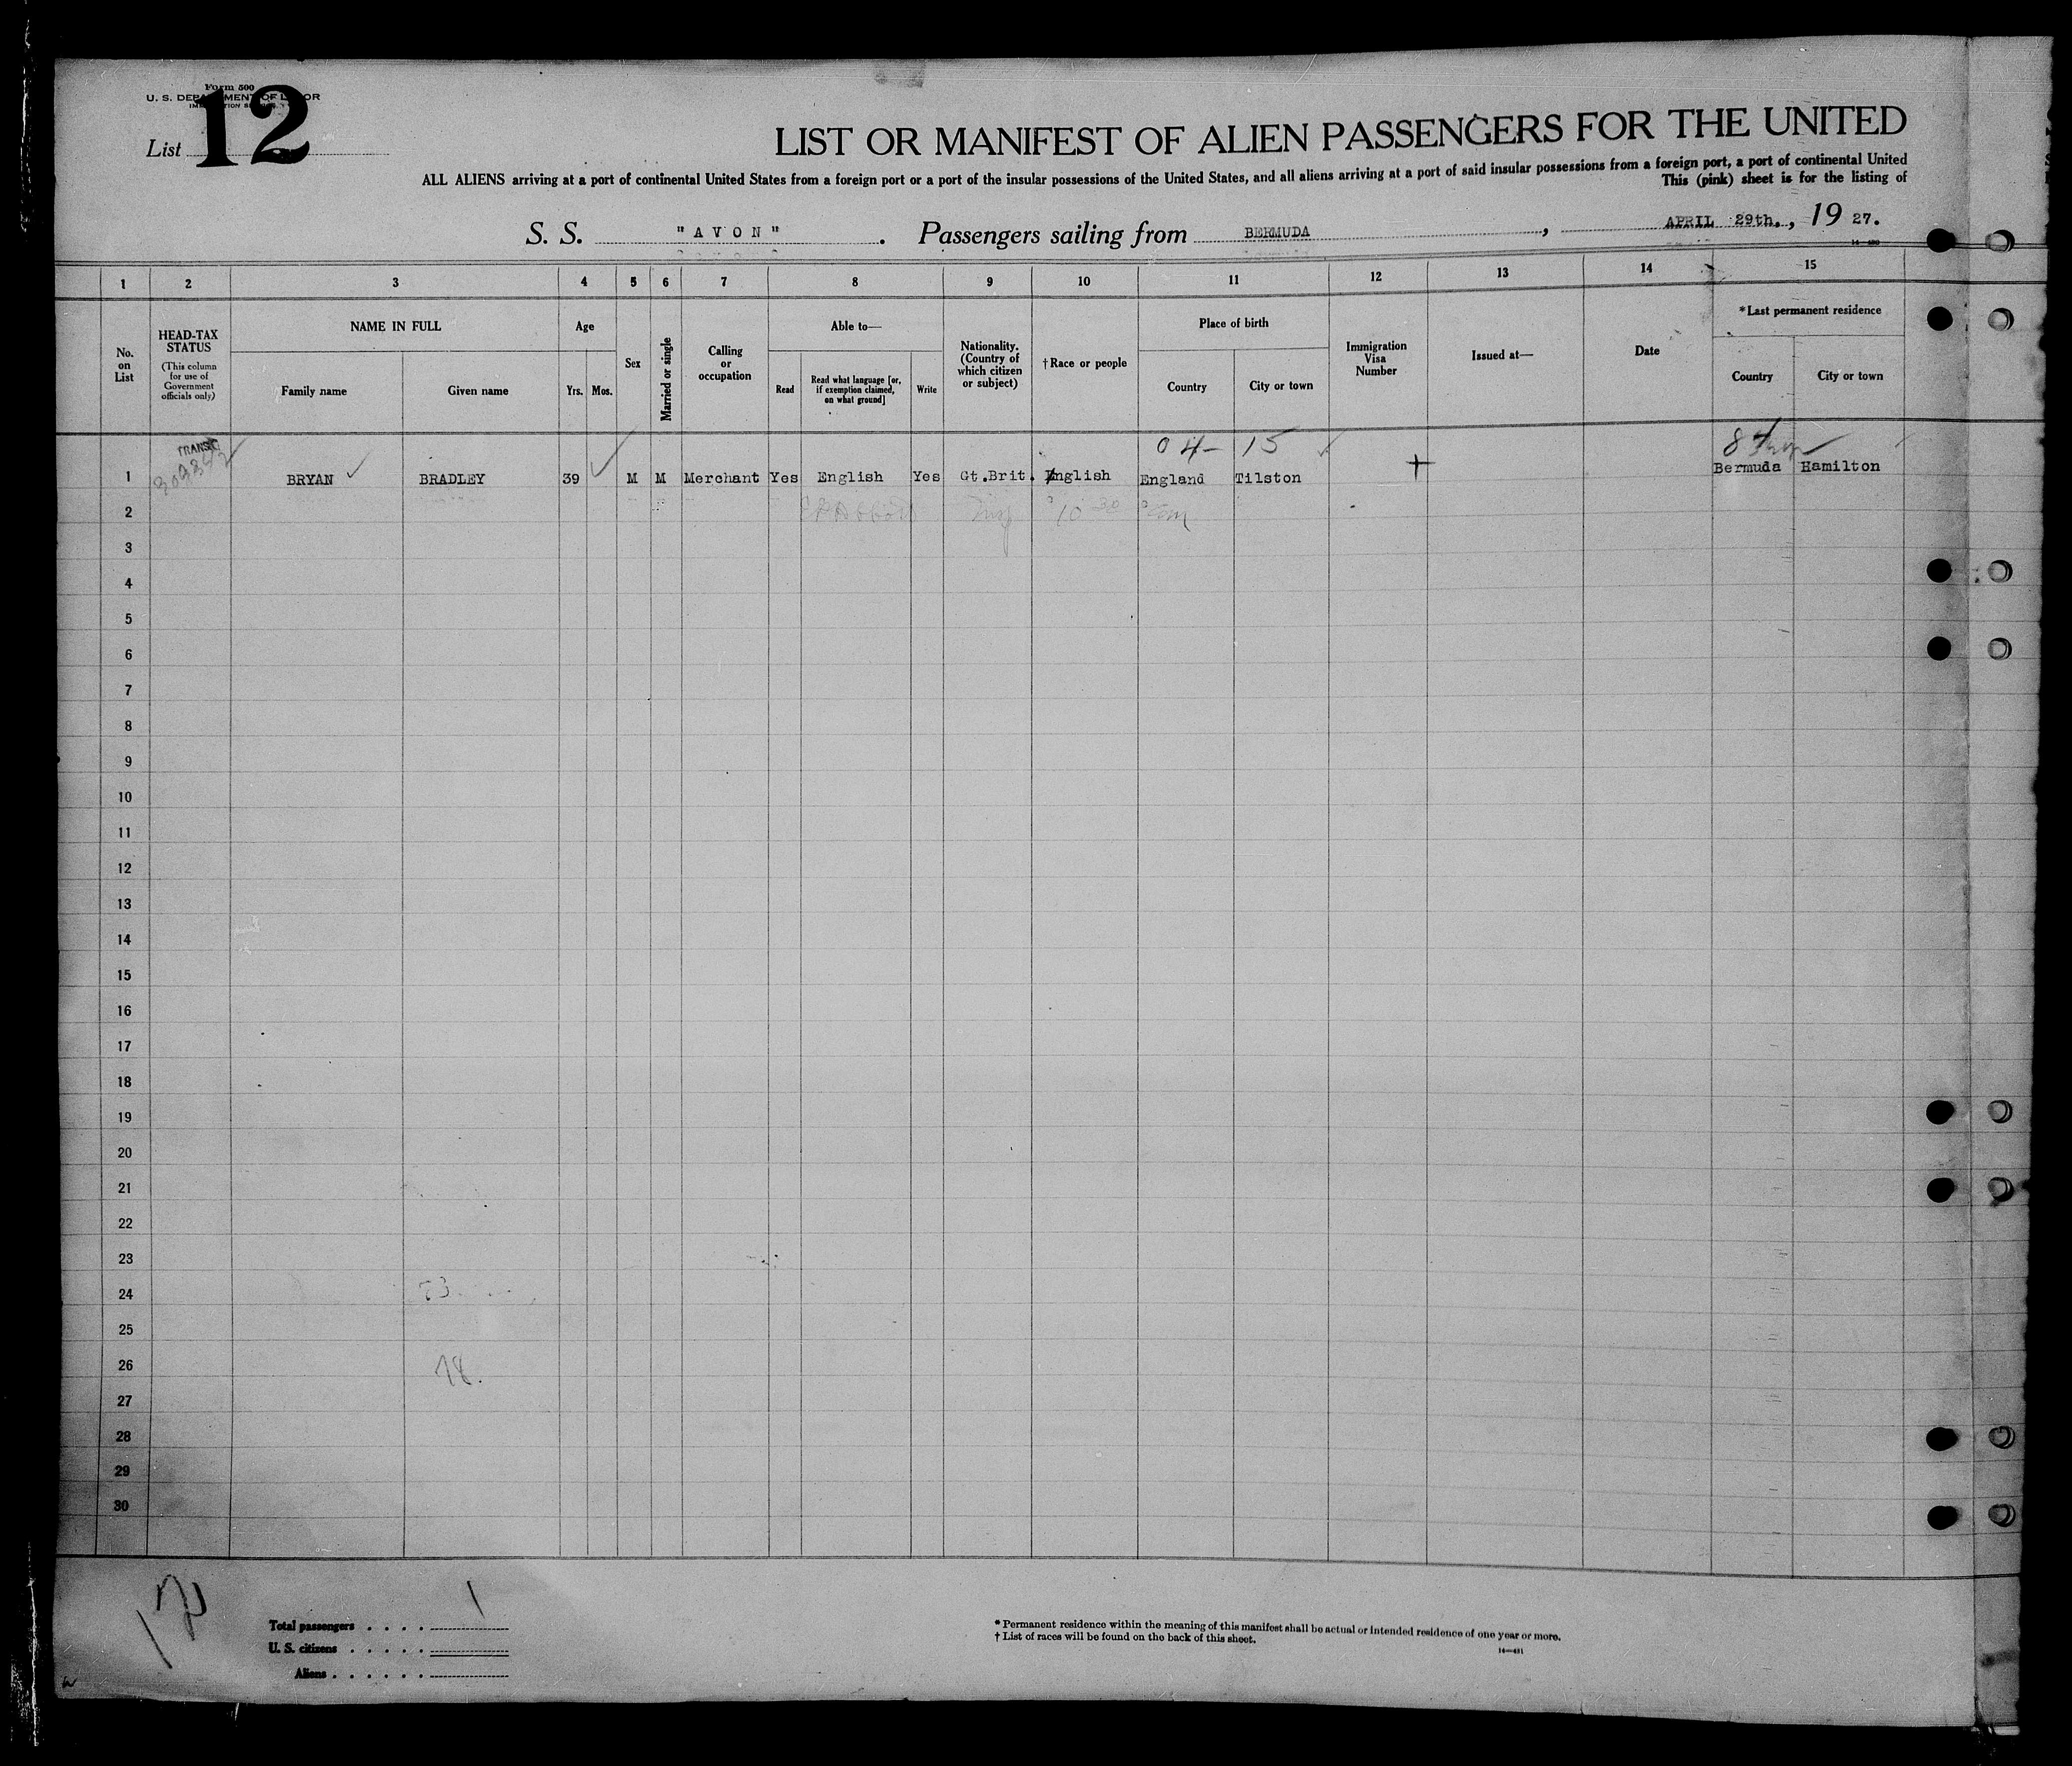 Form 500
U. S. DEPARTMENT OF LABOR
IMMIGRATION SERVICE
List 12
LIST OR MANIFEST OF ALIEN PASSENGERS FOR THE UNITED
ALL ALIENS arriving at a port of continental United States from a foreign port or a port of the insular possessions of the United States, and all aliens arriving at a port of said insular possessions from a foreign port, a port of continental United
This (pink) sheet is for the listing of
S. S. "AVON". Passengers sailing from BERMUDA, APRIL 29th., 1927.
14—430
1 2 3 4 5 6 7 8 9 10 11 12 13 14 15
No. on List
HEAD-TAX STATUS
(This column for use of Government officials only)
NAME IN FULL
Family name Given name
Age
Yrs. Mos.
Sex
Married or single
Calling or occupation
Able to—
Read
Read what language [or, if exemption claimed, on what ground]
Write
Nationality. (Country of which citizen or subject)
†Race or people
Place of birth
Country City or town
Immigration Visa Number
Issued at—
Date
*Last permanent residence
Country City or town
TRANSIT
04- 15
84
1 BRYAN BRADLEY 39 M M Merchant Yes English Yes Gt.Brit. English England Tilston Bermuda Hamilton
2 10 30
3
4
5
6
7
8
9
10
11
12
13
14
15
16
17
18
19
20
21
22
23
24
25
26
27
28
29
30
Total passengers 1
U. S. citizens
Aliens
* Permanent residence within the meaning of this manifest shall be actual or intended residence of one year or more.
† List of races will be found on the back of this sheet.
14—431